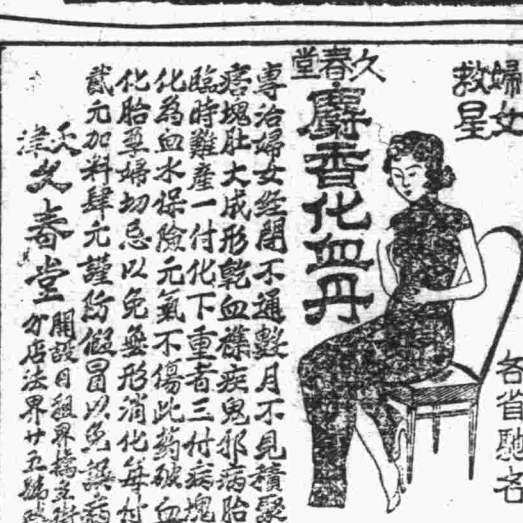 婦女
救星
各省馳名
久春堂
麝香化血丹
專治婦女經閉不通數月不見積聚
痞塊肚大成形乾血癆疾鬼邪病胎
臨時難產一付化下重者三付病塊
化為血水保險元氣不傷此药破血
化胎孕婦切忌以免無形消化每付
貳元加料肆元謹防假冒以免誤病
天津久春堂
開設日租界橋立街
分店法界廿五號路